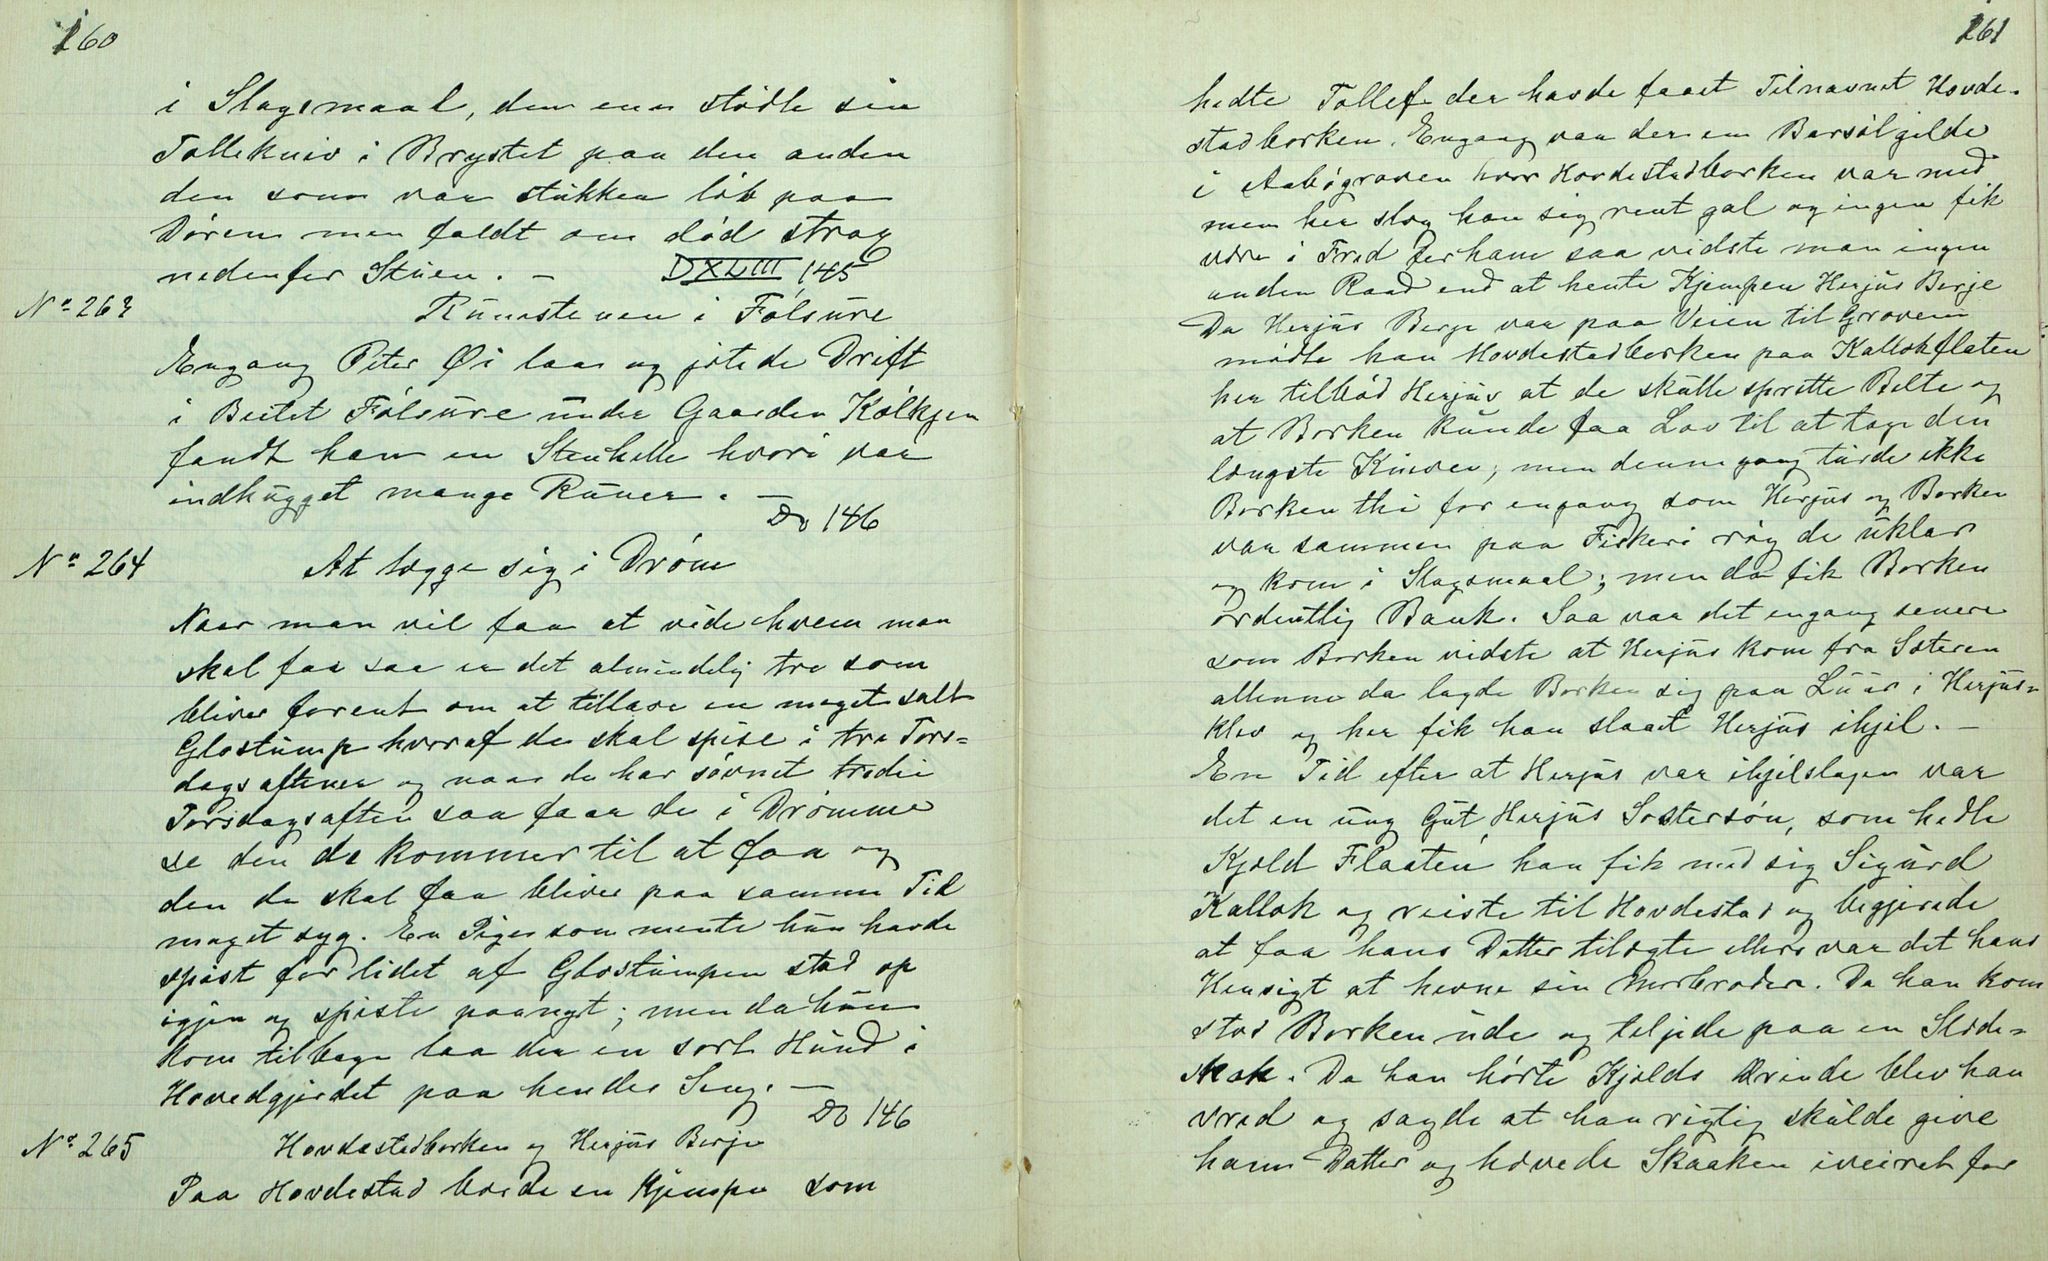 160
i Slagsmaal, den ene stødte sin
Tollekniv i Brystet paa den anden
den som var stukken løb paa
Døren men faldt om død strax
nedenfor Stuen. – DXLIII, 145
No 263 Runestenen i Følsure
Engang Peter Øi laa og jøtede Drift
i Beitet Følsure under Gaarden Kølkjen
fandt han en Stenhelle hvori var
indhugget mange Runer. –
Do 146
No 264 At lægge sig i Drøm
Naar man vil faa at vide hvem man
skal faa saa er det almindelig tre som
bliver forent om at tillave en meget salt
Glostump hvoraf de skal spise i tre Tors=
dagsaftener og naar de har søvnet tredie
Torsdagsaften saa faar de i Drømme
se den de kommer til at faa og
den de skal faa bliver paa samme Tid
meget syg. En Pige som mente hun havde
spist for lidet af Glostumpen stod op
igjen og spiste paanyt; men da hun
kom tilbage laa der en sort Hund i
Hovedgjerdet paa hendes Seng. –
Do 146
No 265 Hovdestadborken og Herjus Berje
Paa Hovdestad boede en Kjempe som
161
hedte Tollef der havde faaet Tilnavnet Hovde-
stadborken. Engang var der en Barsølgilde
i Aabøgraven hvor Hovdestadborken var med
men her slog han sig rent gal og ingen fik
være i Fred for ham saa vidste man ingen
anden Raad end at hente Kjempen Herjus Berje
Da Herjus Berje var paa Veien til Graven
mødte han Hovdestadborken paa Kallokflaten
her tilbød Herjus at de skulle spritte Belte og
at Borken kunde faa Lov til at tage den
længste Kniven; men denne gang turde ikke
Borken thi for engang som Herjus og Borken
var sammen paa Fiskeri røg de uklar
og kom i Slagsmaal; men da fik Borken
ordentlig Bank. Saa var det engang senere
som Borken vidste at Herjus kom fra Sæteren
allenne da lagde Borken sig paa Luur i Herjus=
klev og her fik han slaaet Herjus ihjel. –
En Tid efter at Herjus var ihjelslagen var
det en ung Gut, Herjus Søstersøn, som hedte
Kjøld Flaaten han fik med sig Sigurd
Kallok og reiste til Hovdestad og begjerede
at faa hans Datter tilægte ellers var det hans
Hensigt at hevne sin Morbroder. Da han kom
stod Borken ude og teljede paa en Slide=
skok. Da han hørte Kjølds Ærinde blev han
vred og sagde at han rigtig skulde give
ham Datter og hævede Skaaken iveiret for